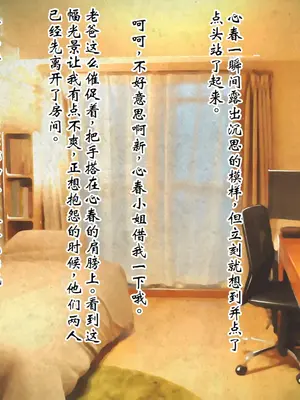 心春一瞬间露出沉思的模样，但立刻就想到并点了
点头站了起来。
呵呵，不好意思啊新，心春小姐借我一下哦。
老爸这么催促着，把手搭在心春的肩膀上。看到这
幅光景让我有点不爽，正想抱怨的时候，他们两人
已经先离开了房间。